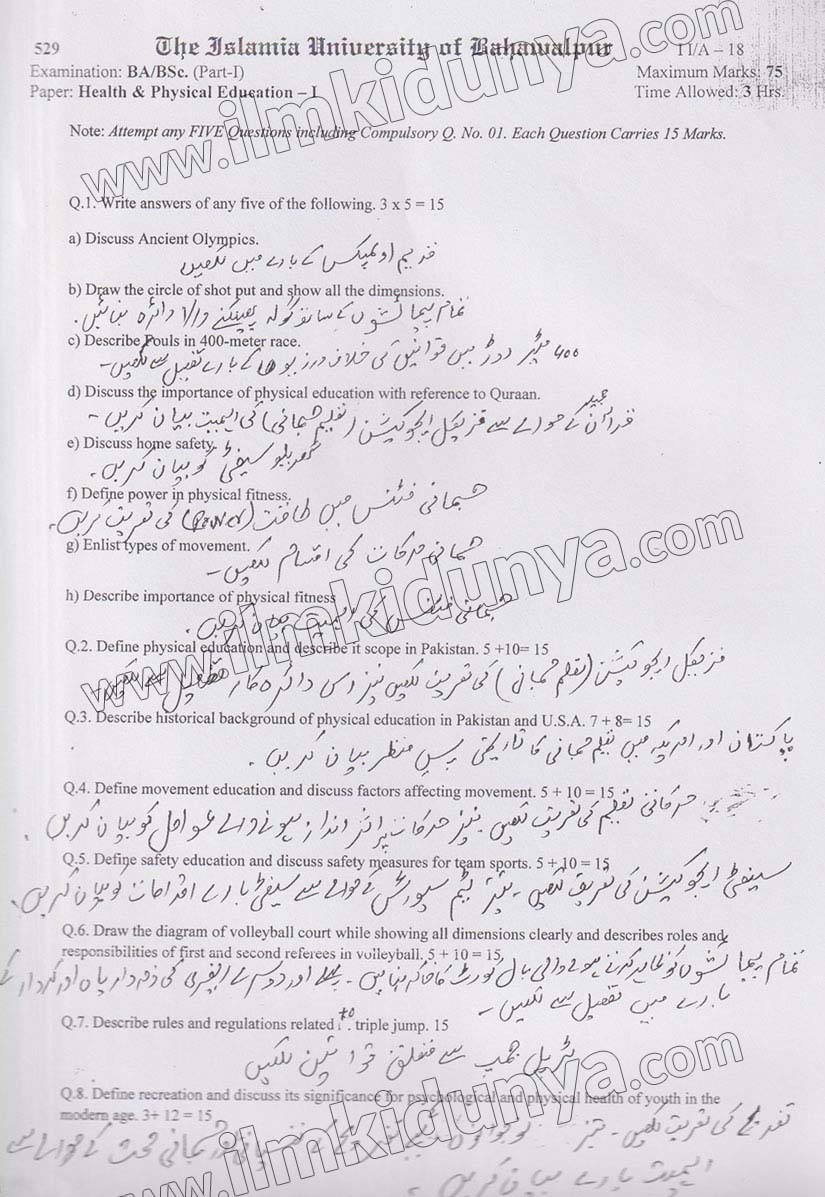 529 The Islamia University of Bahawalpur 11/A – 18
Examination: BA/BSc. (Part-I) Maximum Marks: 75
Paper: Health & Physical Education – I Time Allowed: 3 Hrs.
Note: Attempt any FIVE Questions including Compulsory Q. No. 01. Each Question Carries 15 Marks.
www.ilmkidunya.com
Q.1. Write answers of any five of the following. 3 x 5 = 15
a) Discuss Ancient Olympics.
قدیم اولمپکس کے بارے میں لکھیں
b) Draw the circle of shot put and show all the dimensions.
تمام پیمائشوں کے ساتھ گولہ پھینکنے والا دائرہ بنائیں۔
c) Describe Fouls in 400-meter race.
400 میٹر دوڑ میں قوانین کی خلاف ورزیوں کے بارے تفصیل سے لکھیں۔
d) Discuss the importance of physical education with reference to Quraan.
قرآن مجید کے حوالے سے فزیکل ایجوکیشن (تعلیم جسمانی) کی اہمیت بیان کریں۔
e) Discuss home safety.
گھریلو سیفٹی کو بیان کریں۔
f) Define power in physical fitness.
جسمانی فٹنس میں طاقت (Power) کی تعریف کریں۔
g) Enlist types of movement.
جسمانی حرکات کی اقسام لکھیں۔
h) Describe importance of physical fitness
جسمانی فٹنس کی اہمیت بیان کریں۔
www.ilmkidunya.com
Q.2. Define physical education and describe it scope in Pakistan. 5 +10= 15
فزیکل ایجوکیشن (تعلیم جسمانی) کی تعریف لکھیں نیز اس دائرہ کار تفصیل سے لکھیں۔
Q.3. Describe historical background of physical education in Pakistan and U.S.A. 7 + 8= 15
پاکستان اور امریکہ میں تعلیم جسمانی کا تاریخی پس منظر بیان کریں۔
Q.4. Define movement education and discuss factors affecting movement. 5 + 10 = 15
حرکاتی تعلیم کی تعریف لکھیں۔ نیز حرکات پر اثر انداز ہونے والے عوامل کو بیان کریں۔
Q.5. Define safety education and discuss safety measures for team sports. 5 + 10 = 15
سیفٹی ایجوکیشن کی تعریف لکھیں۔ نیز ٹیم سپورٹس کے حوالے سے سیفٹی بارے اقدامات کو بیان کریں۔
Q.6. Draw the diagram of volleyball court while showing all dimensions clearly and describes roles and
responsibilities of first and second referees in volleyball. 5 + 10 = 15
تمام پیمائشوں کو ظاہر کرتے ہوئے والی بال کورٹ کا خاکہ بنائیں۔ پہلے اور دوسرے ریفری کی ذمہ داریاں اور کردار کے
بارے میں تفصیل سے لکھیں۔
Q.7. Describe rules and regulations related to triple jump. 15
ٹریپل جمپ سے متعلق قوانین لکھیں
Q.8. Define recreation and discuss its significance for psychological and physical health of youth in the
modern age. 3+ 12 = 15
تفریح کی تعریف لکھیں۔ نیز نوجوانوں کیلئے تفریح کے نفسیاتی اور جسمانی صحت کے حوالے سے
اہمیت بارے بیان کریں۔
www.ilmkidunya.com